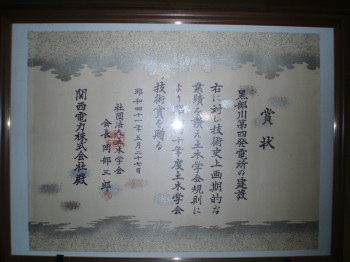 賞状
黒部川第四発電所の建設
右に対し技術史上画期的な
業績を称え土木学会規則に
より昭和四十年度土木学会
技術賞を贈る
昭和四十一年五月二十七日
社団法人土木学会
会長 岡部三郎
関西電力株式会社殿